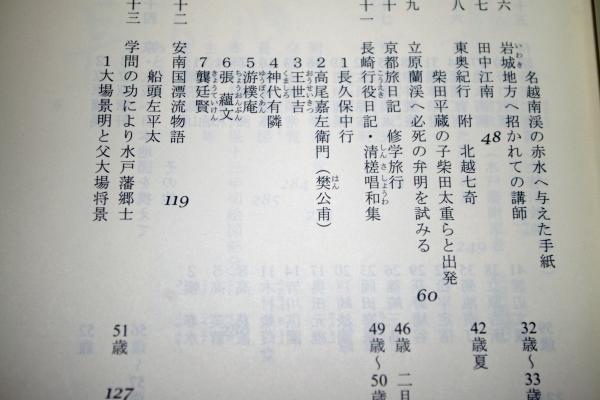 名越南渓の赤水へ与えた手紙
六 岩城地方へ招かれての講師 32歳〜33歳
いわき
七 田中江南 48
八 東奥紀行 附 北越七奇 42歳夏
柴田平蔵の子柴田太重らと出発
九 立原蘭渓へ必死の弁明を試みる 60
十 京都旅日記 修学旅行 46歳 二日
十一 長崎行役日記・清槎唱和集 49歳〜50歳
こうえき しんさしょうわ
1 長久保中行
2 高尾嘉左衛門(樊公甫)
おうせいきつ はん
3 王世吉
4 神代有隣
くましろ
5 游樸庵
ゆうぼくあん
6 張蘊文
ちょううんぶん
7 龔廷賢
きょうていけん
十二 安南国漂流物語 119
船頭左平太
十三 学問の功により水戸藩郷士 51歳
1 大場景明と父大場将景 127